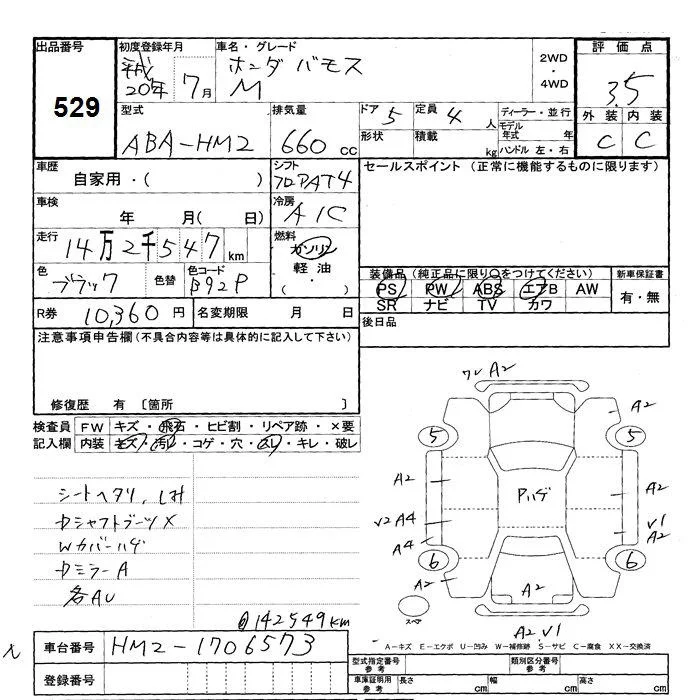 出品番号
529
初度登録年月
平成20年 7月
車名・グレード
ホンダ バモス
M
2WD
・
4WD
評価点
3.5
外装 内装
C C
型式
ABA-HM2
排気量
660 cc
ドア 5
定員 4 人
形状
積載 kg
ディーラー・並行
モデル年式 年
ハンドル 左・右
車歴
自家用・( )
シフト
フロアAT4
セールスポイント (正常に機能するものに限ります)
車検
年 月( 日)
冷房
A/C
走行
14万2千547km
燃料
ガソリン
軽油
・( )
色
ブラック
色替
色コード
B92P
装備品 (純正品に限り○をつけてください)
PS PW ABS エアB AW
SR ナビ TV カワ
新車保証書
有・無
R券 10,360 円
名変期限 月 日
後日品
注意事項申告欄(不具合内容等は具体的に記入して下さい)
修復歴 有 〔箇所 〕
検査員記入欄
FW キズ・飛石・ヒビ割・リペア跡・×要
内装 キズ・汚れ・コゲ・穴・スレ・キレ・破レ
シートヘタリ、シミ
ウカバーハゲ
ミラーA
各AU
@142549km
ワレA2
A2
5
5
A2
Pハゲ
A2
V2 A4
V1
A2
A4
6
6
A2
A2
スペア
A2.V1
A-キズ E-エクボ U-凹み W-補修跡 S-サビ C-腐食 XX-交換済
車台番号
HM2-1706573
登録番号
型式指定番号
参考
類別区分番号
参考
車庫証明用
参考
長さ cm
幅 cm
高さ cm